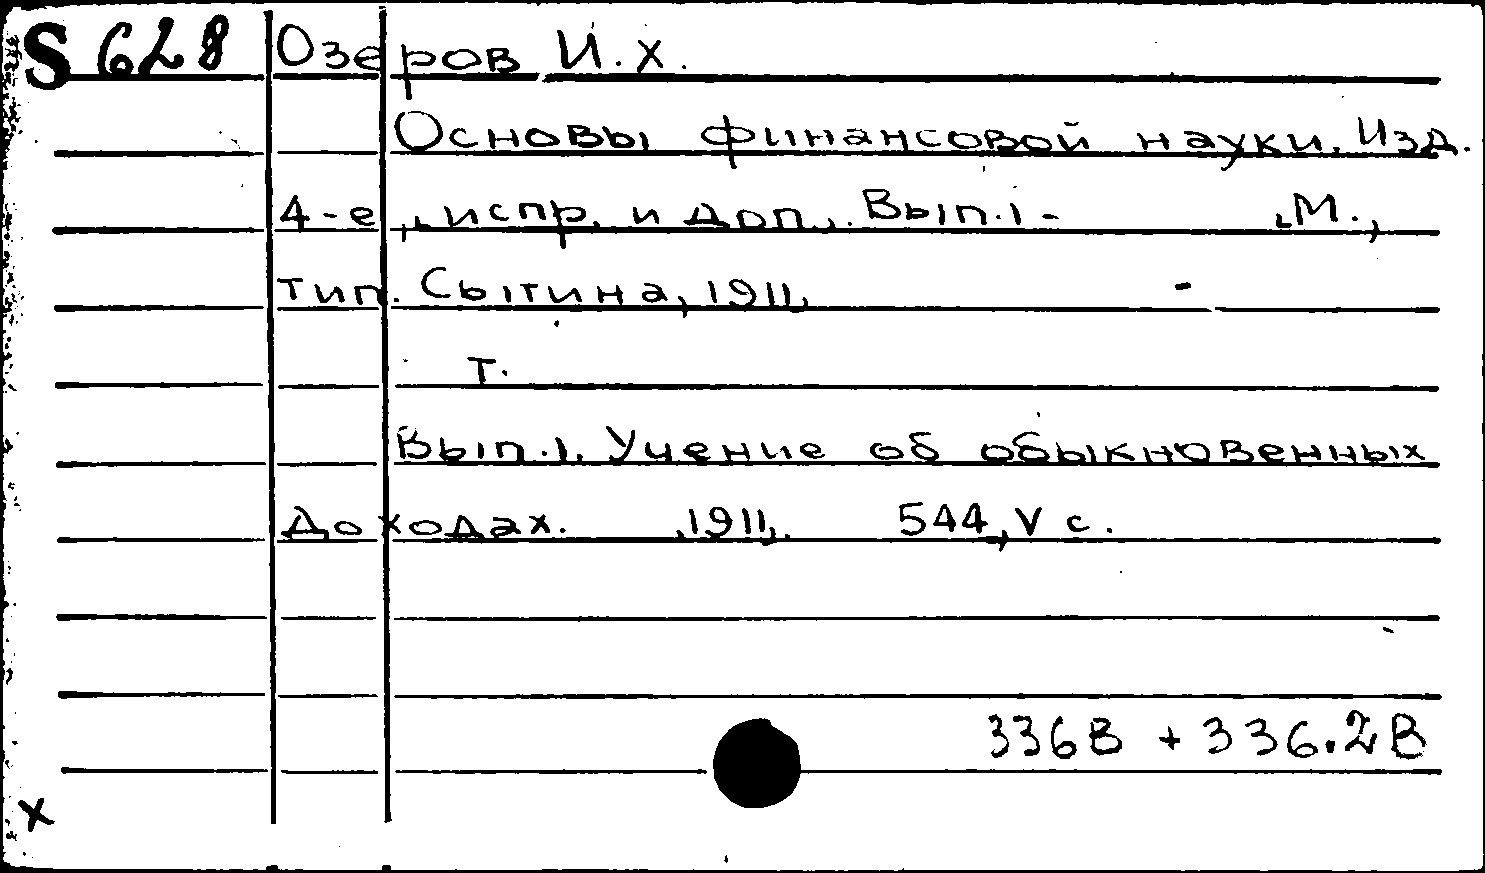 S 628 Озеров И.Х.
Основы финансовой науки. Изд.
4-е, испр. и доп.. Вып.1- ,М.,
тип. Сытина, 1911,
т.
Вып.1. Учение об обыкновенных
доходах. ,1911,. 544, V с.
336В + 336.2В
х